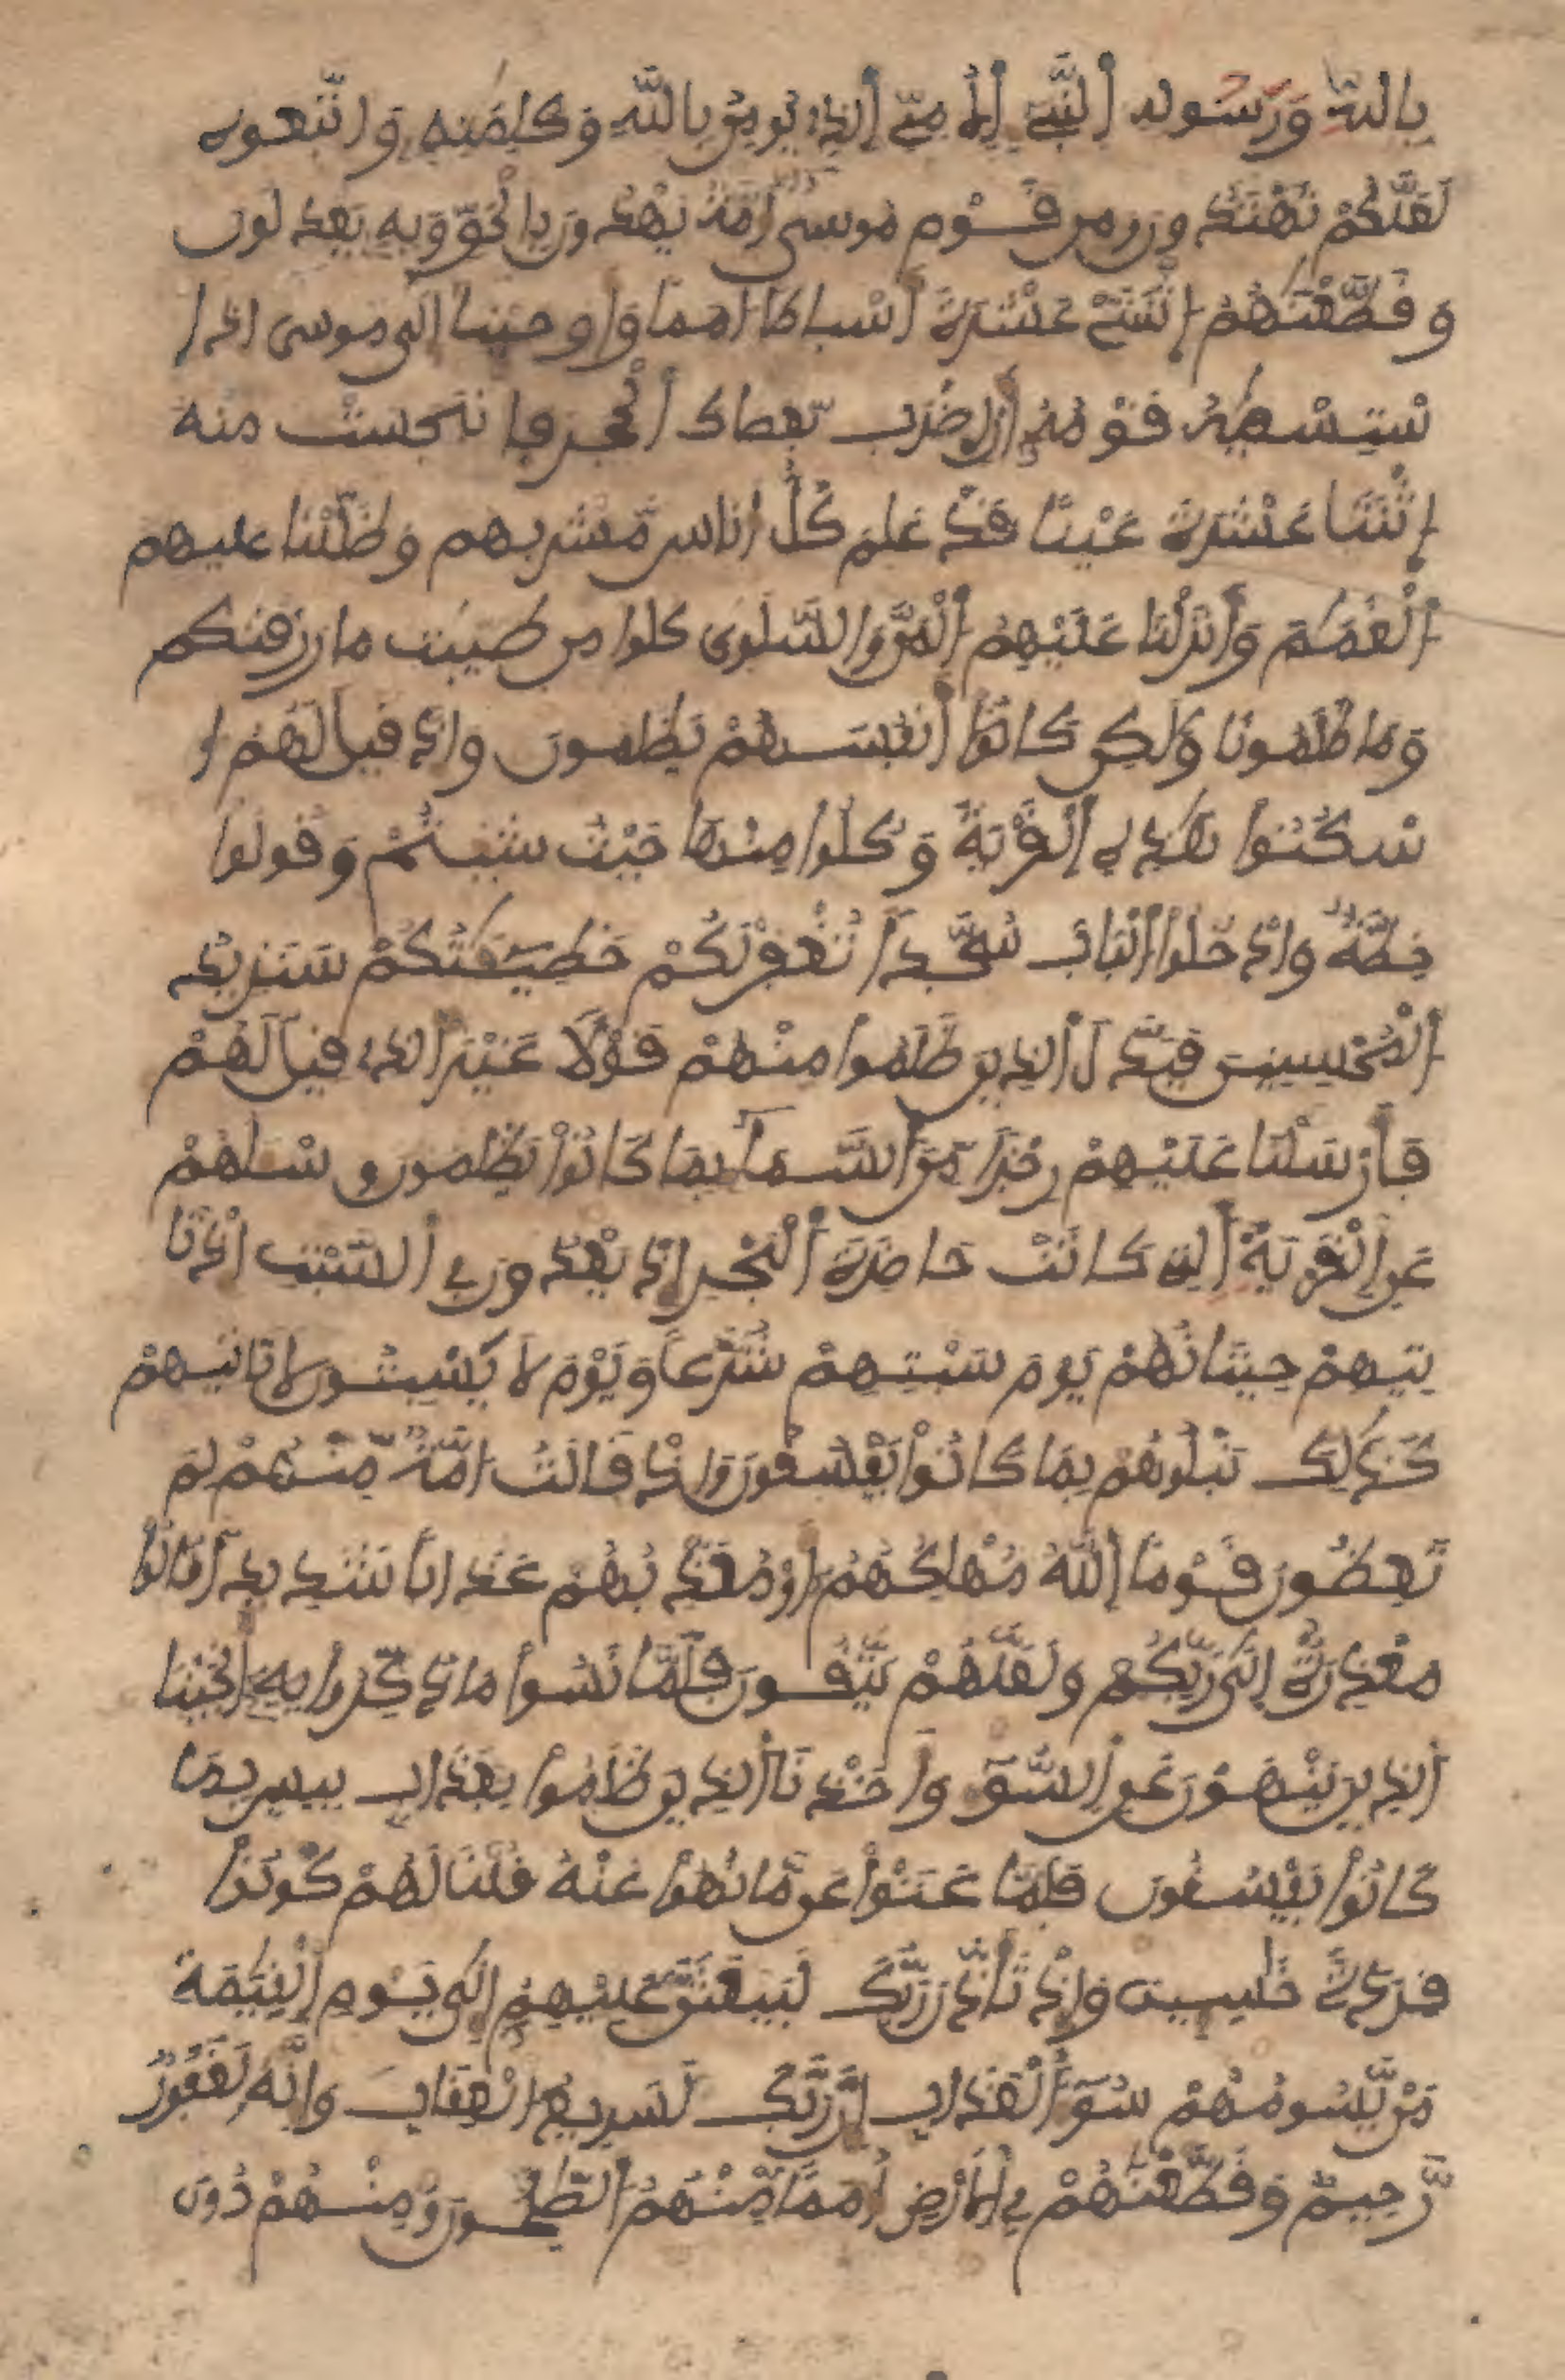 بالله ورسوله النبي الامي الذي يومن بالله وكلمته واتبعوه
لعلكم تهتدون ومن قوم موسى أمة يهدون بالحق وبه يعدلون
وقطعنهم اثنتي عشرة أسباطا امما واوحينا الى موسى اذ ا
ستسقيه قومه أن اضرب بعصاك الحجر فانبجست منه
اثنتا عشرة عينا قد علم كل اناس مشربهم وظللنا عليهم
الغمم وأنزلنا عليهم المن والسلوى كلوا من طيبت ما رزقنكم
وما ظلمونا ولكن كانوا أنفسهم يظلمون واذ قيل لهم ا
سكنوا هذه القرية وكلوا منها حيث شيتم وقولوا
حطة وادخلوا الباب سجدا تغفر لكم خطيئتكم سنزيد
المحسنين فبدل الذين ظلموا منهم قولا غير الذي قيل لهم
فأرسلنا عليهم رجزا من السما بما كانوا يظلمون وسلهم
عن القرية التي كانت حاضرة البحر اذ يعدون في السبت اذ تا
تيهم حيتانهم يوم سبتهم شرعا ويوم لا يسبتون لا تاتيهم
كذلك نبلوهم بما كانوا يفسقون واذ قالت امة منهم لم
تعظون قوما الله مهلكهم او معذبهم عذابا شديدا قالوا
معذرة الى ربكم ولعلهم يتقون فلما نسوا ما ذكروا به أنجينا
الذين ينهون عن السو وأخذنا الذين ظلموا بعذاب بيس بما
كانوا يفسقون فلما عتوا عن ما نهوا عنه قلنا لهم كونوا
قردة خسين واذ تأذن ربك ليبعثن عليهم الى يوم القيمة
من يسومهم سو العذاب ان ربك لسريع العقاب وانه لغفور
رحيم وقطعنهم في الارض أمما منهم الصلحون ومنهم دون